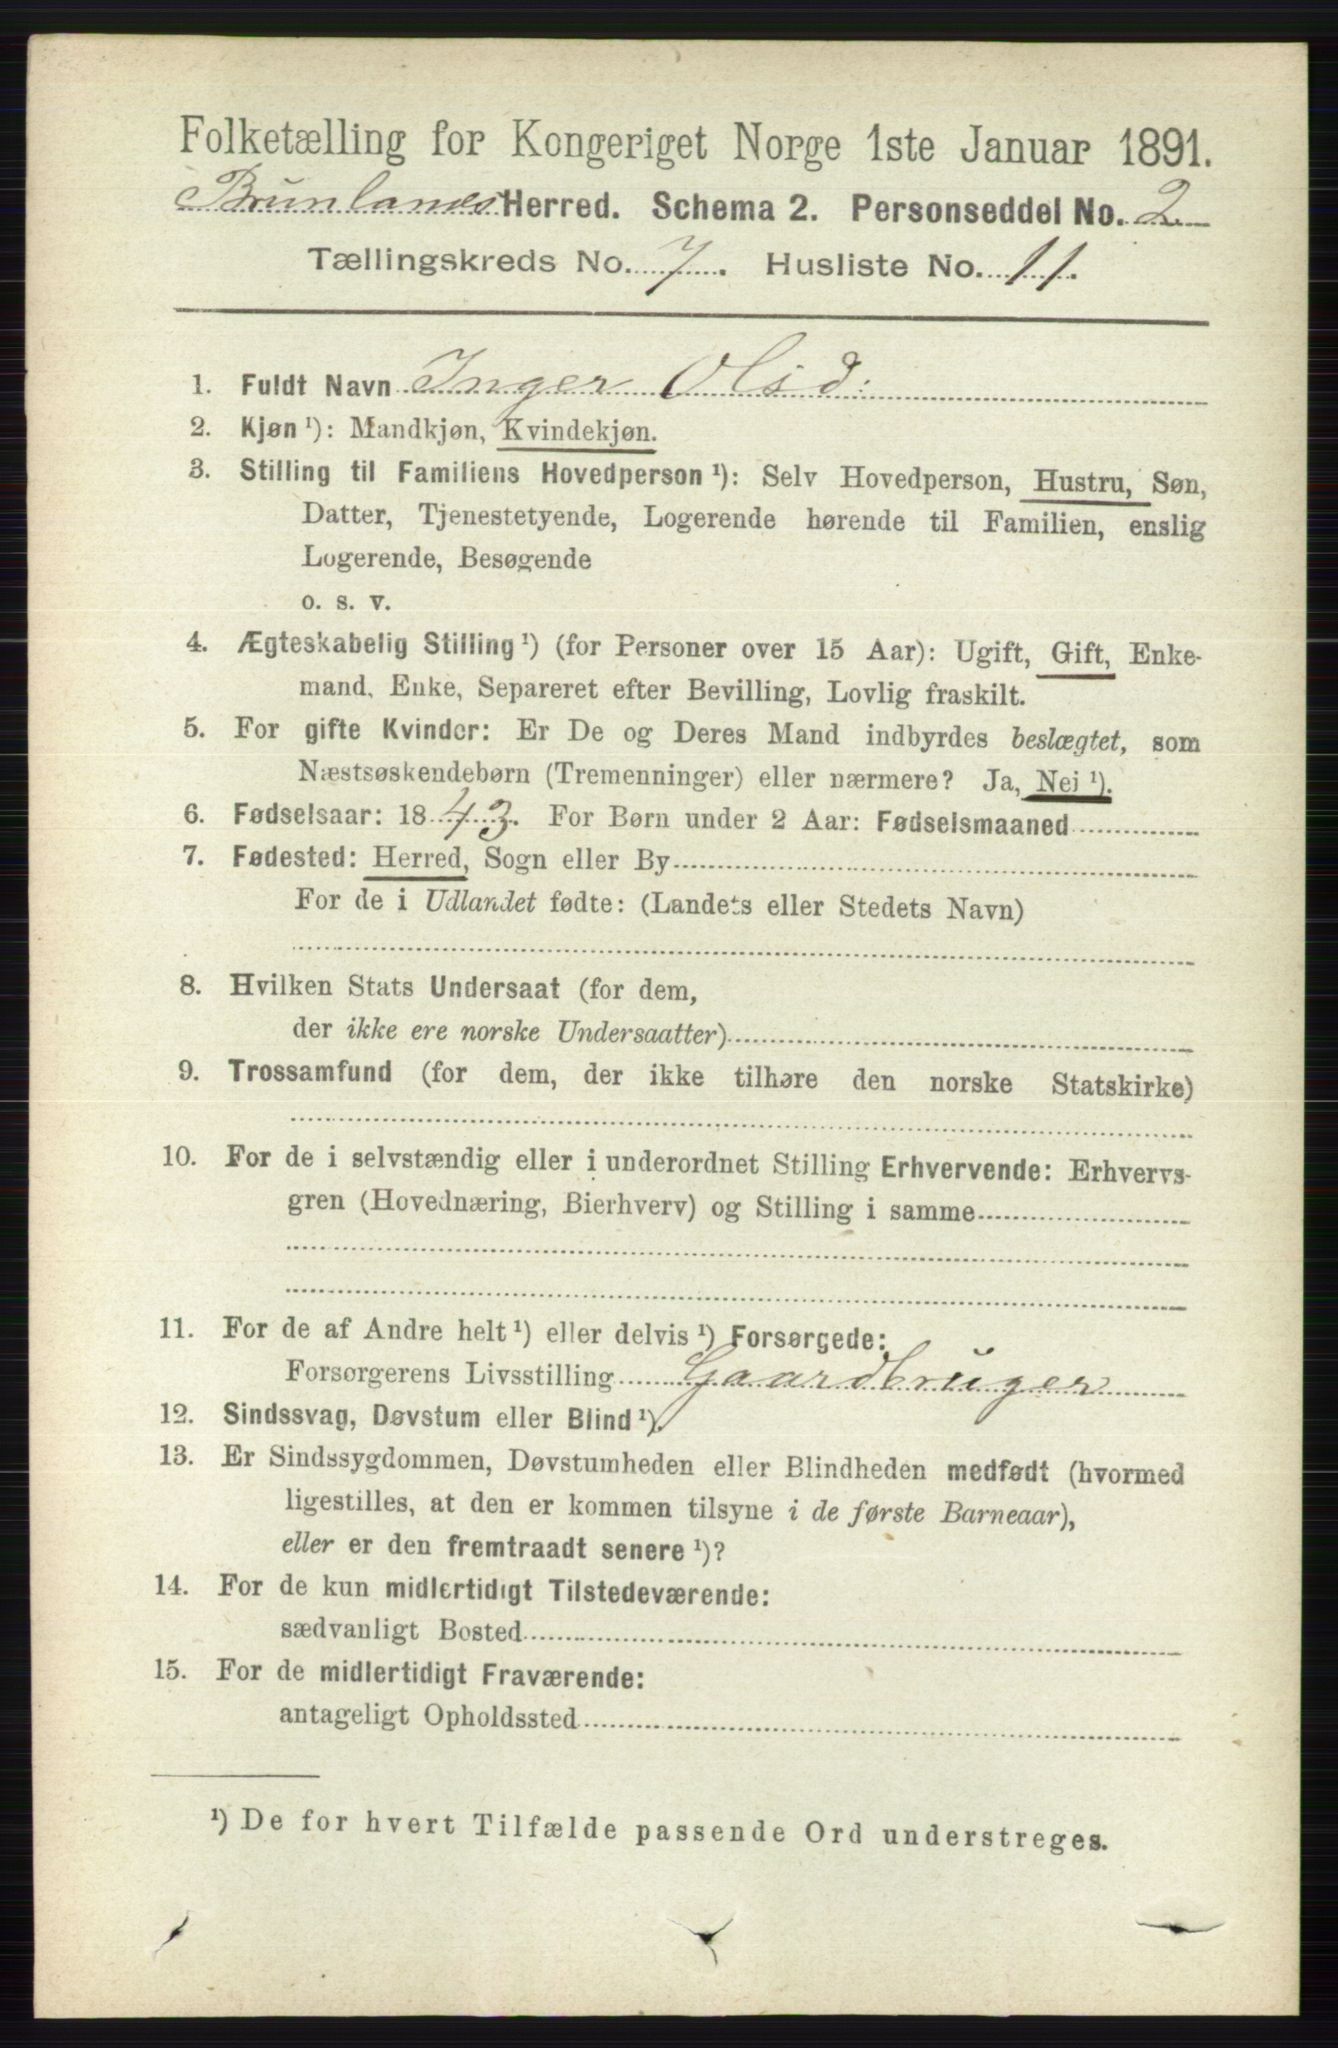 Folketælling for Kongeriget Norge 1ste Januar 1891.
Brunlanes Herred. Schema 2. Personseddel No. 2
Tællingskreds No. 7. Husliste No. 11.
1. Fuldt Navn Inger Olsd:
2. Kjøn ¹): Mandkjøn, Kvindekjøn.
3. Stilling til Familiens Hovedperson ¹): Selv Hovedperson, Hustru, Søn,
Datter, Tjenestetyende, Logerende hørende til Familien, enslig
Logerende, Besøgende
o. s. v.
4. Ægteskabelig Stilling ¹) (for Personer over 15 Aar): Ugift, Gift, Enke-
mand, Enke, Separeret efter Bevilling, Lovlig fraskilt.
5. For gifte Kvinder: Er De og Deres Mand indbyrdes beslægtet, som
Næstsøskendebørn (Tremenninger) eller nærmere? Ja, Nei ¹).
6. Fødselsaar: 1843. For Børn under 2 Aar: Fødselsmaaned
7. Fødested: Herred, Sogn eller By
For de i Udlandet fødte: (Landets eller Stedets Navn)
8. Hvilken Stats Undersaat (for dem,
der ikke ere norske Undersaatter)
9. Trossamfund (for dem, der ikke tilhøre den norske Statskirke)
10. For de i selvstændig eller i underordnet Stilling Erhvervende: Erhvervs-
gren (Hovednæring, Bierhverv) og Stilling i samme
11. For de af Andre helt ¹) eller delvis ¹) Forsørgede:
Forsørgerens Livsstilling Gaardbruger
12. Sindssvag, Døvstum eller Blind ¹).
13. Er Sindssygdommen, Døvstumheden eller Blindheden medfødt (hvormed
ligestilles, at den er kommen tilsyne i de første Barneaar),
eller er den fremtraadt senere ¹)?
14. For de kun midlertidigt Tilstedeværende:
sædvanligt Bosted
15. For de midlertidigt Fraværende:
antageligt Opholdssted
¹) De for hvert Tilfælde passende Ord understreges.